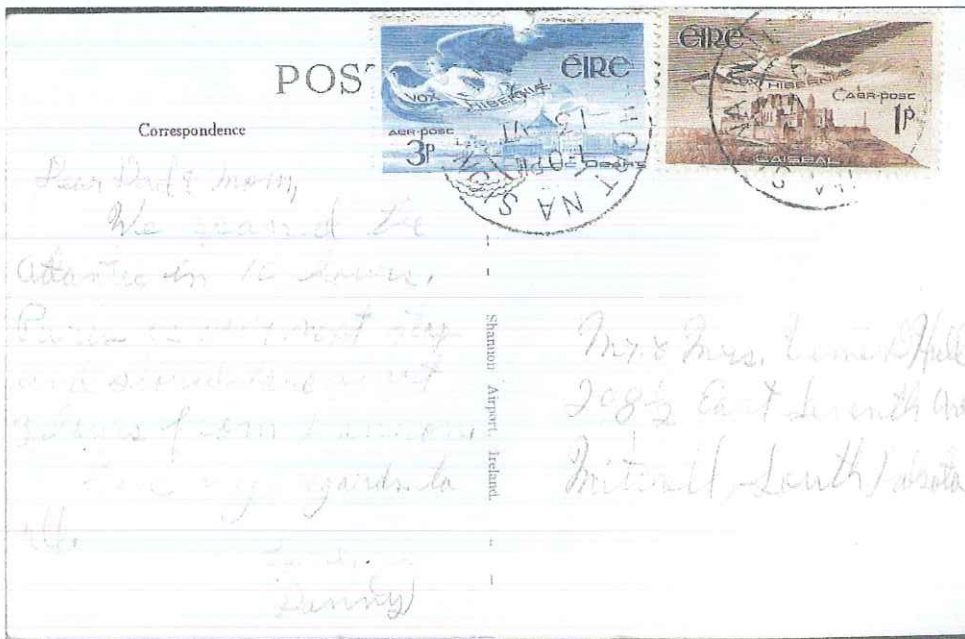 POST
Correspondence
ÉIRE
VOX HIBERNIAE
AER-POST
3p
ÉIRE
VOX HIBERNIAE
AER-POST
1p
CAISEAL
Dear Dad & Mom,
We crossed the
Atlantic in hours.
Paris is our next stop
and
3 hours from
my regards to
all.
Danny
Shannon Airport, Ireland.
Mr. & Mrs.
208½ East Seventh Ave
Mitchell, South Dakota